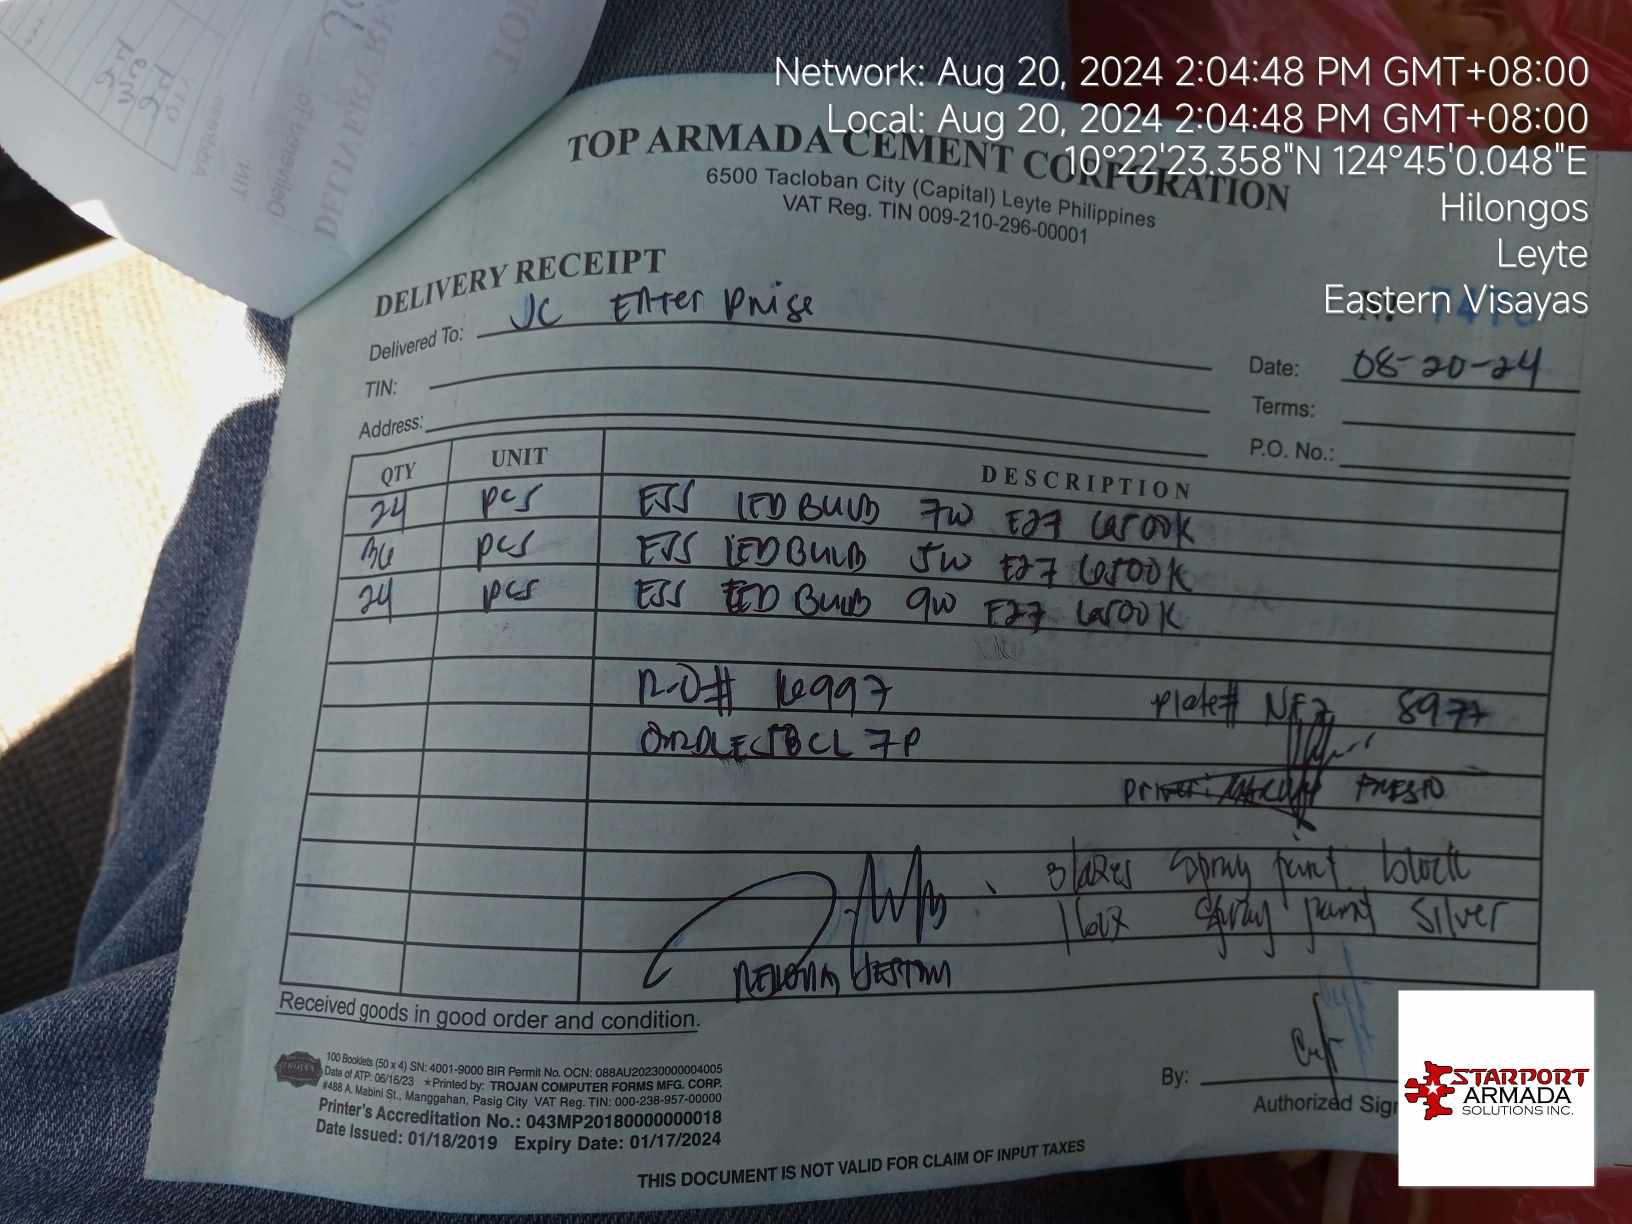 Network: Aug 20, 2024 2:04:48 PM GMT+08:00
Local: Aug 20, 2024 2:04:48 PM GMT+08:00
10°22'23.358"N 124°45'0.048"E
Hilongos
Leyte
Eastern Visayas
TOP ARMADA CEMENT CORPORATION
6500 Tacloban City (Capital) Leyte Philippines
VAT Reg. TIN 009-210-296-00001
DELIVERY RECEIPT
Delivered To: JC Enterprise
Date: 08-20-24
TIN:
Terms:
Address:
P.O. No.:
QTY UNIT DESCRIPTION
24 pcs ESS LED Bulb 7W E27 6500K
36 pcs ESS LED Bulb 5W E27 6500K
24 pcs ESS LED Bulb 9W E27 6500K
16997 Plate# 8977
7P
PRESTO
3 boxes spray paint
1 box spray paint silver
Received goods in good order and condition.
100 Booklets (50 x 4) SN: 4001-9000 BIR Permit No. OCN: 088AU20230000004005
Date of ATP: 06/16/23 *Printed by: TROJAN COMPUTER FORMS MFG. CORP.
#488 A. Mabini St., Manggahan, Pasig City VAT Reg. TIN: 000-238-957-00000
Printer's Accreditation No.: 043MP20180000000018
Date Issued: 01/18/2019 Expiry Date: 01/17/2024
By:
Authorized
THIS DOCUMENT IS NOT VALID FOR CLAIM OF INPUT TAXES
STARPORT
ARMADA
SOLUTIONS INC.